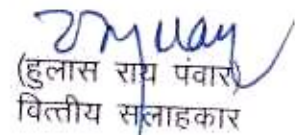 (हुलास राय पंवार)
वित्तीय सलाहकार